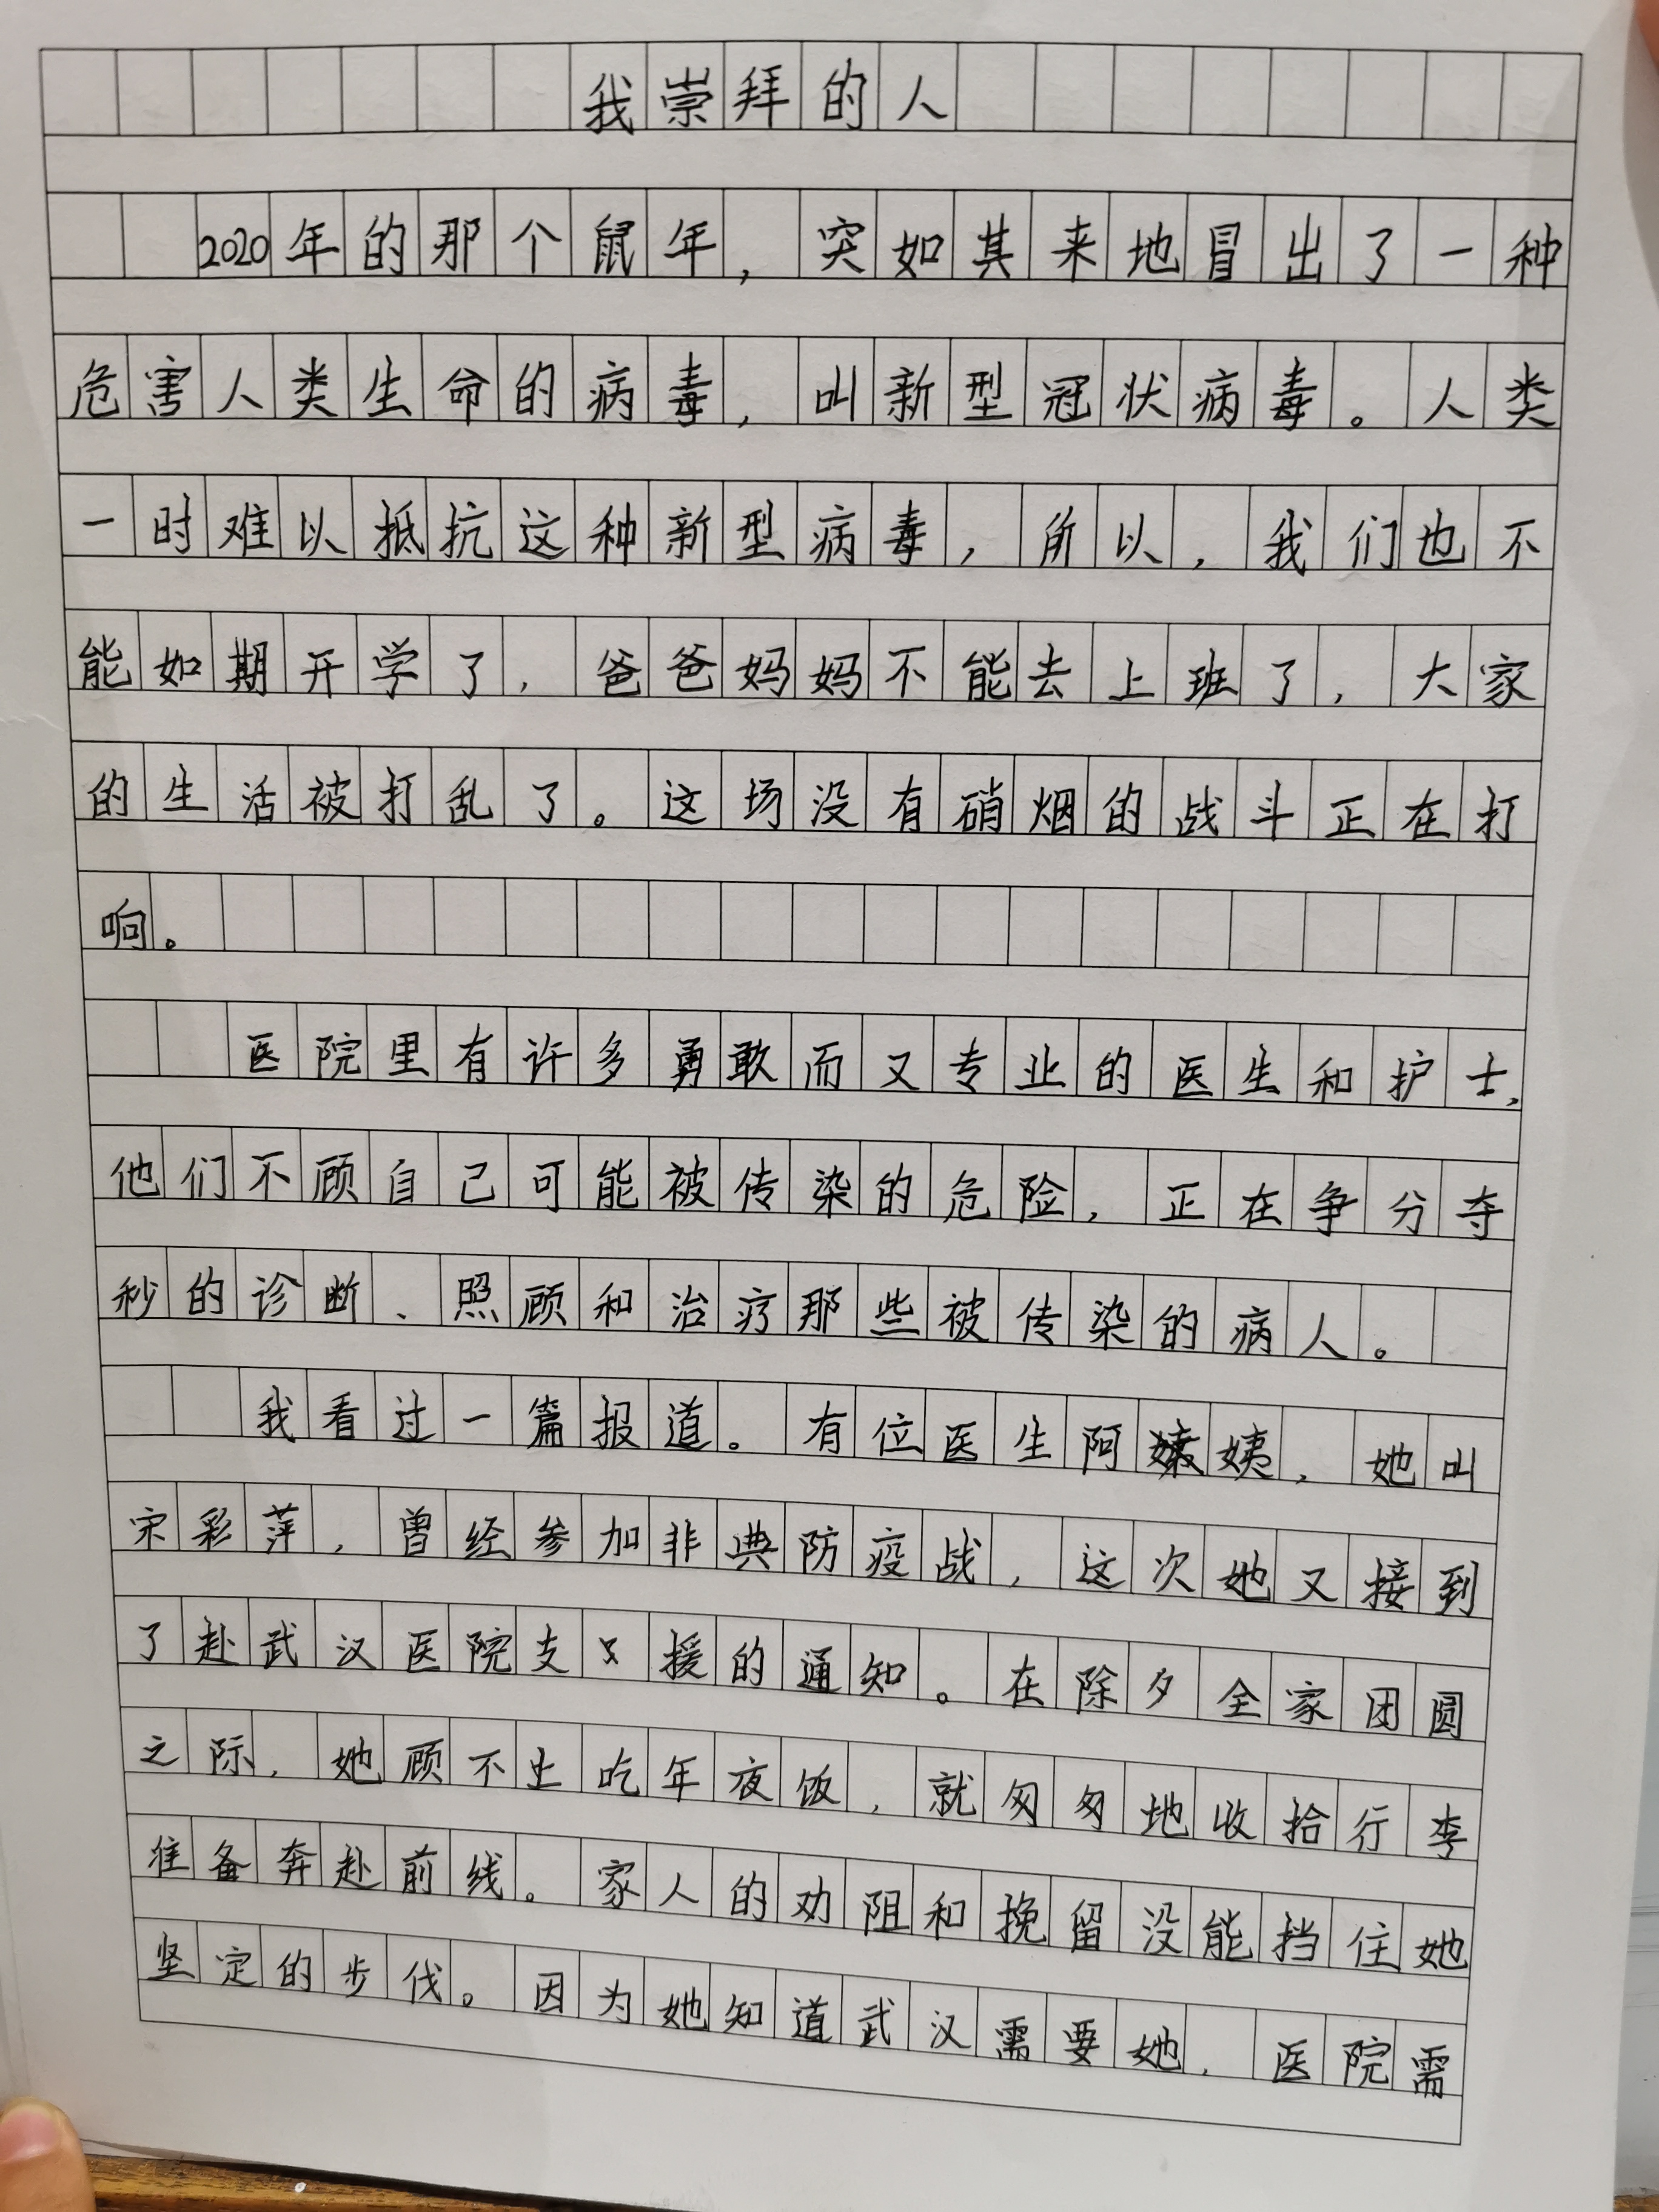 我崇拜的人
2020年的那个鼠年，突如其来地冒出了一种
危害人类生命的病毒，叫新型冠状病毒。人类
一时难以抵抗这种新型病毒，所以，我们也不
能如期开学了，爸爸妈妈不能去上班了，大家
的生活被打乱了。这场没有硝烟的战斗正在打
响。
医院里有许多勇敢而又专业的医生和护士，
他们不顾自己可能被传染的危险，正在争分夺
秒的诊断、照顾和治疗那些被传染的病人。
我看过一篇报道。有位医生阿姨，她叫
宋彩萍，曾经参加非典防疫战，这次她又接到
了赴武汉医院支援的通知。在除夕全家团圆
之际，她顾不上吃年夜饭，就匆匆地收拾行李
准备奔赴前线。家人的劝阻和挽留没能挡住她
坚定的步伐。因为她知道武汉需要她，医院需